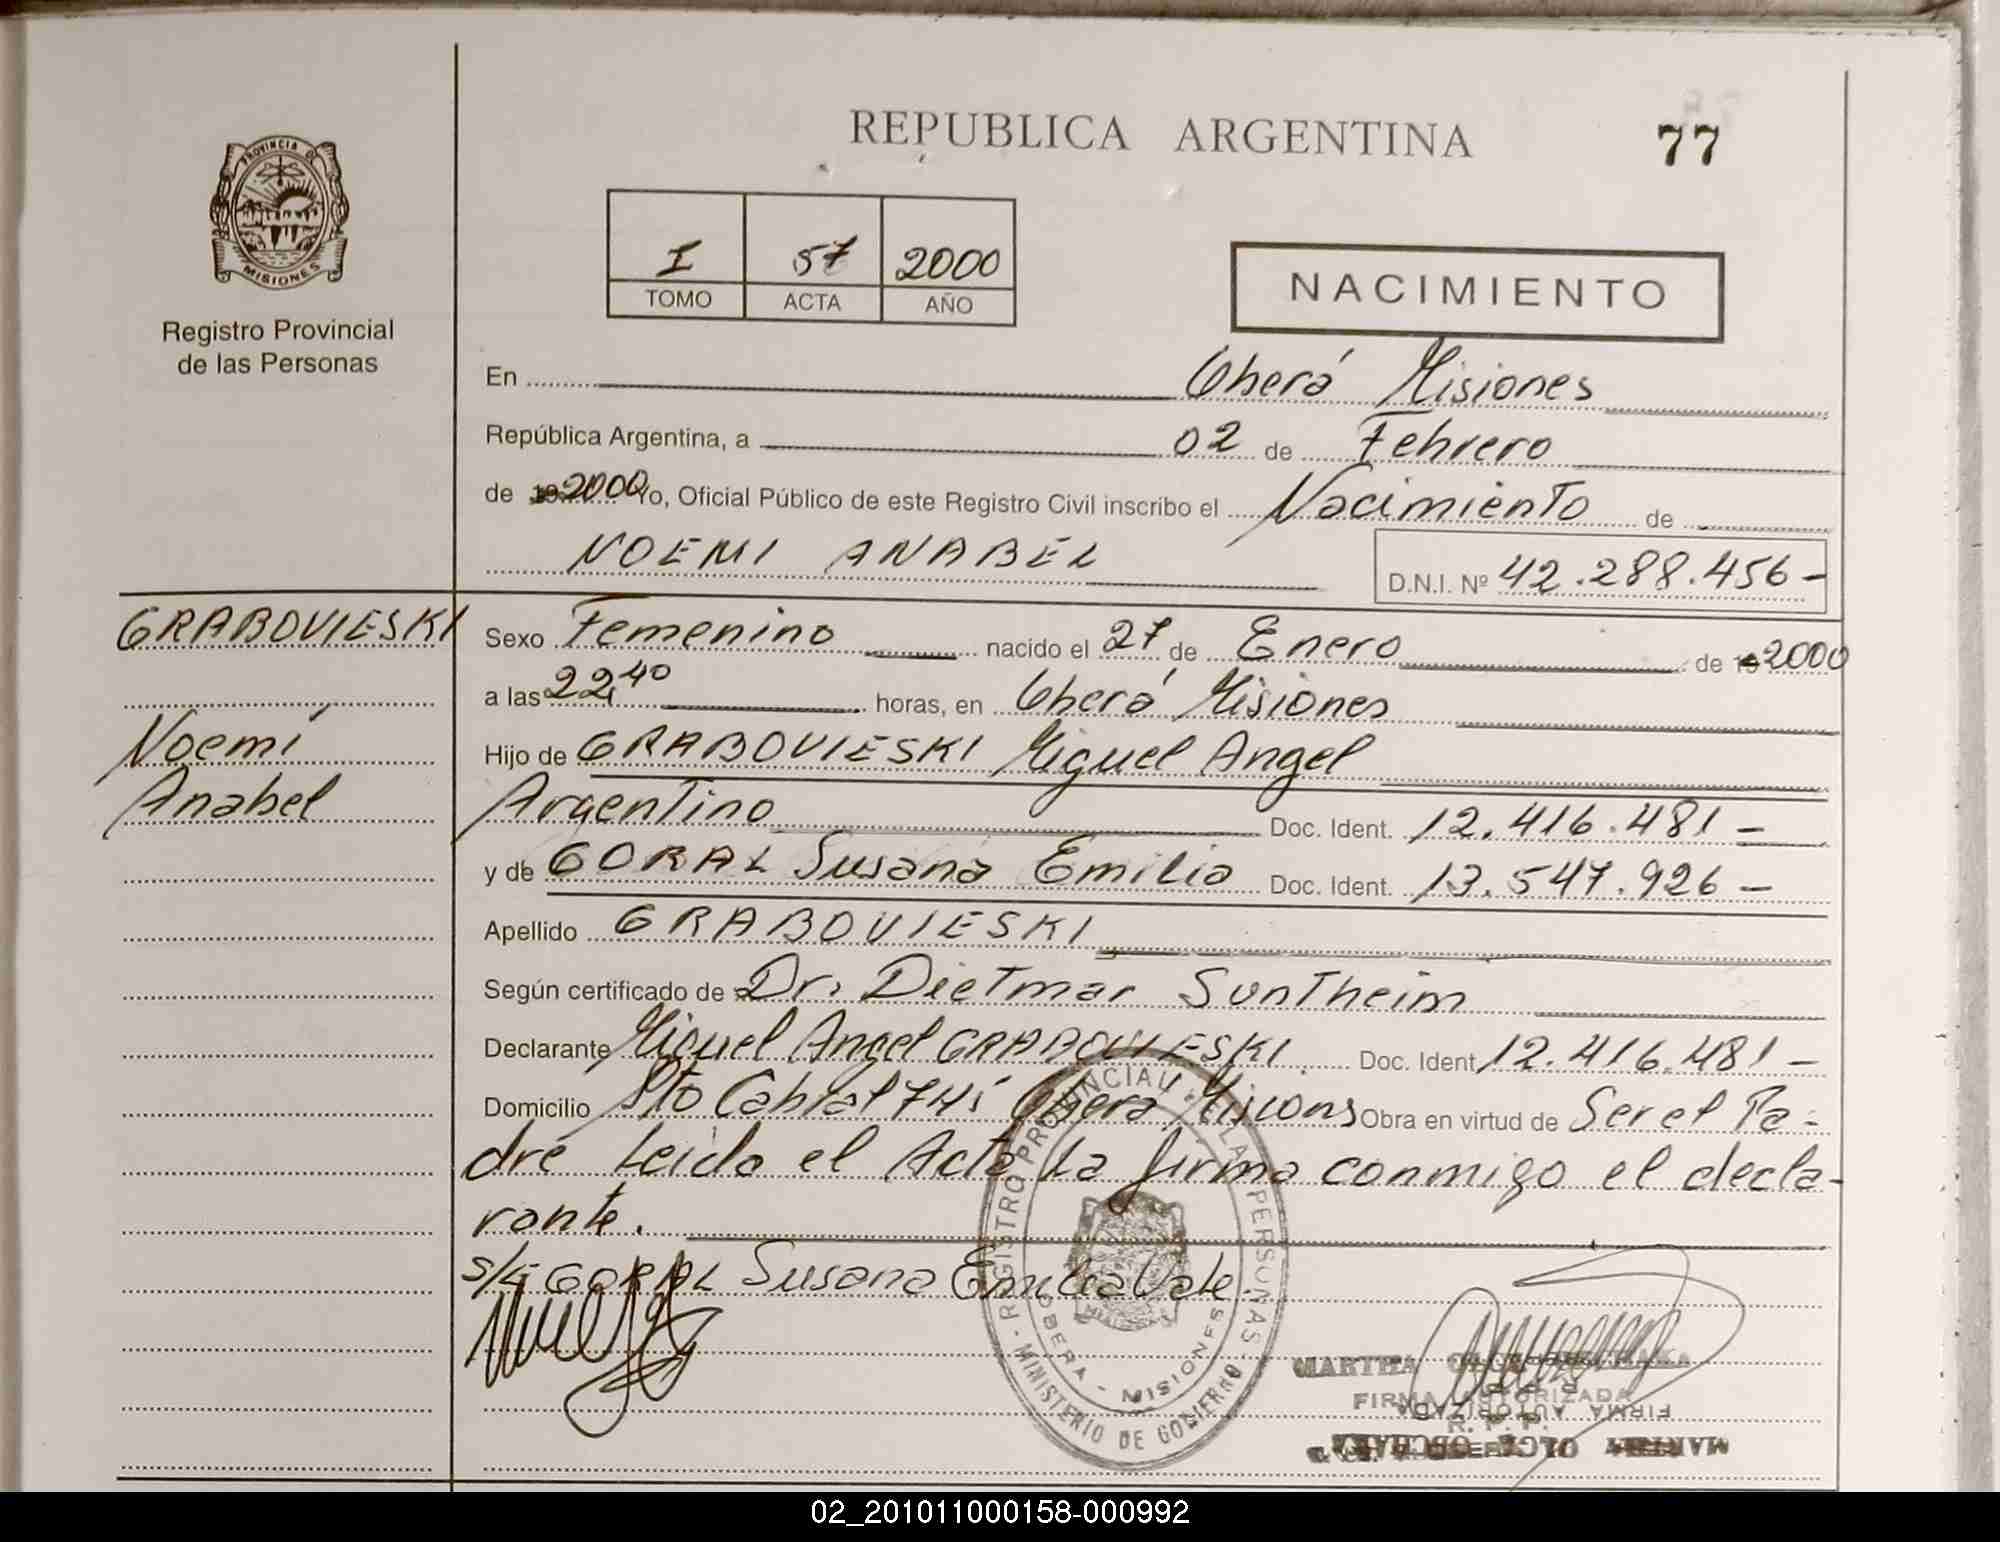 REPUBLICA ARGENTINA
77
PROVINCIA DE
MISIONES
Registro Provincial
de las Personas
I 57 2000
TOMO ACTA AÑO
NACIMIENTO
En Oberá Misiones
República Argentina, a 02 de Febrero
de 2000 Yo, Oficial Público de este Registro Civil inscribo el Nacimiento de
NOEMI ANABEL D.N.I. Nº 42.288.456-
GRABOVIESKI
Noemí
Anabel
Sexo Femenino nacido el 27 de Enero de 2000
a las 22,40 horas, en Oberá Misiones
Hijo de GRABOVIESKI Miguel Angel
Argentino Doc. Ident. 12.416.481-
y de GORAL Susana Emilia Doc. Ident. 13.547.926-
Apellido GRABOVIESKI
Según certificado de Dr. Dietmar Suntheim
Declarante Miguel Angel GRABOVIESKI Doc. Ident. 12.416.481-
Domicilio Sto Cabral Oberá Misions Obra en virtud de Ser el Pa-
dre Leida el Acta La firma conmigo el decla-
rante.
S/L GORAL Susana Emilia Vale
REGISTRO PROVINCIAL DE LAS PERSONAS
OBERA - MISIONES
MINISTERIO DE GOBIERNO
MARTHA
FIRMA AUTORIZADA
R. P. P.
FIRMA AUTORIZADA
MARTHA OLGA
02_201011000158-000992